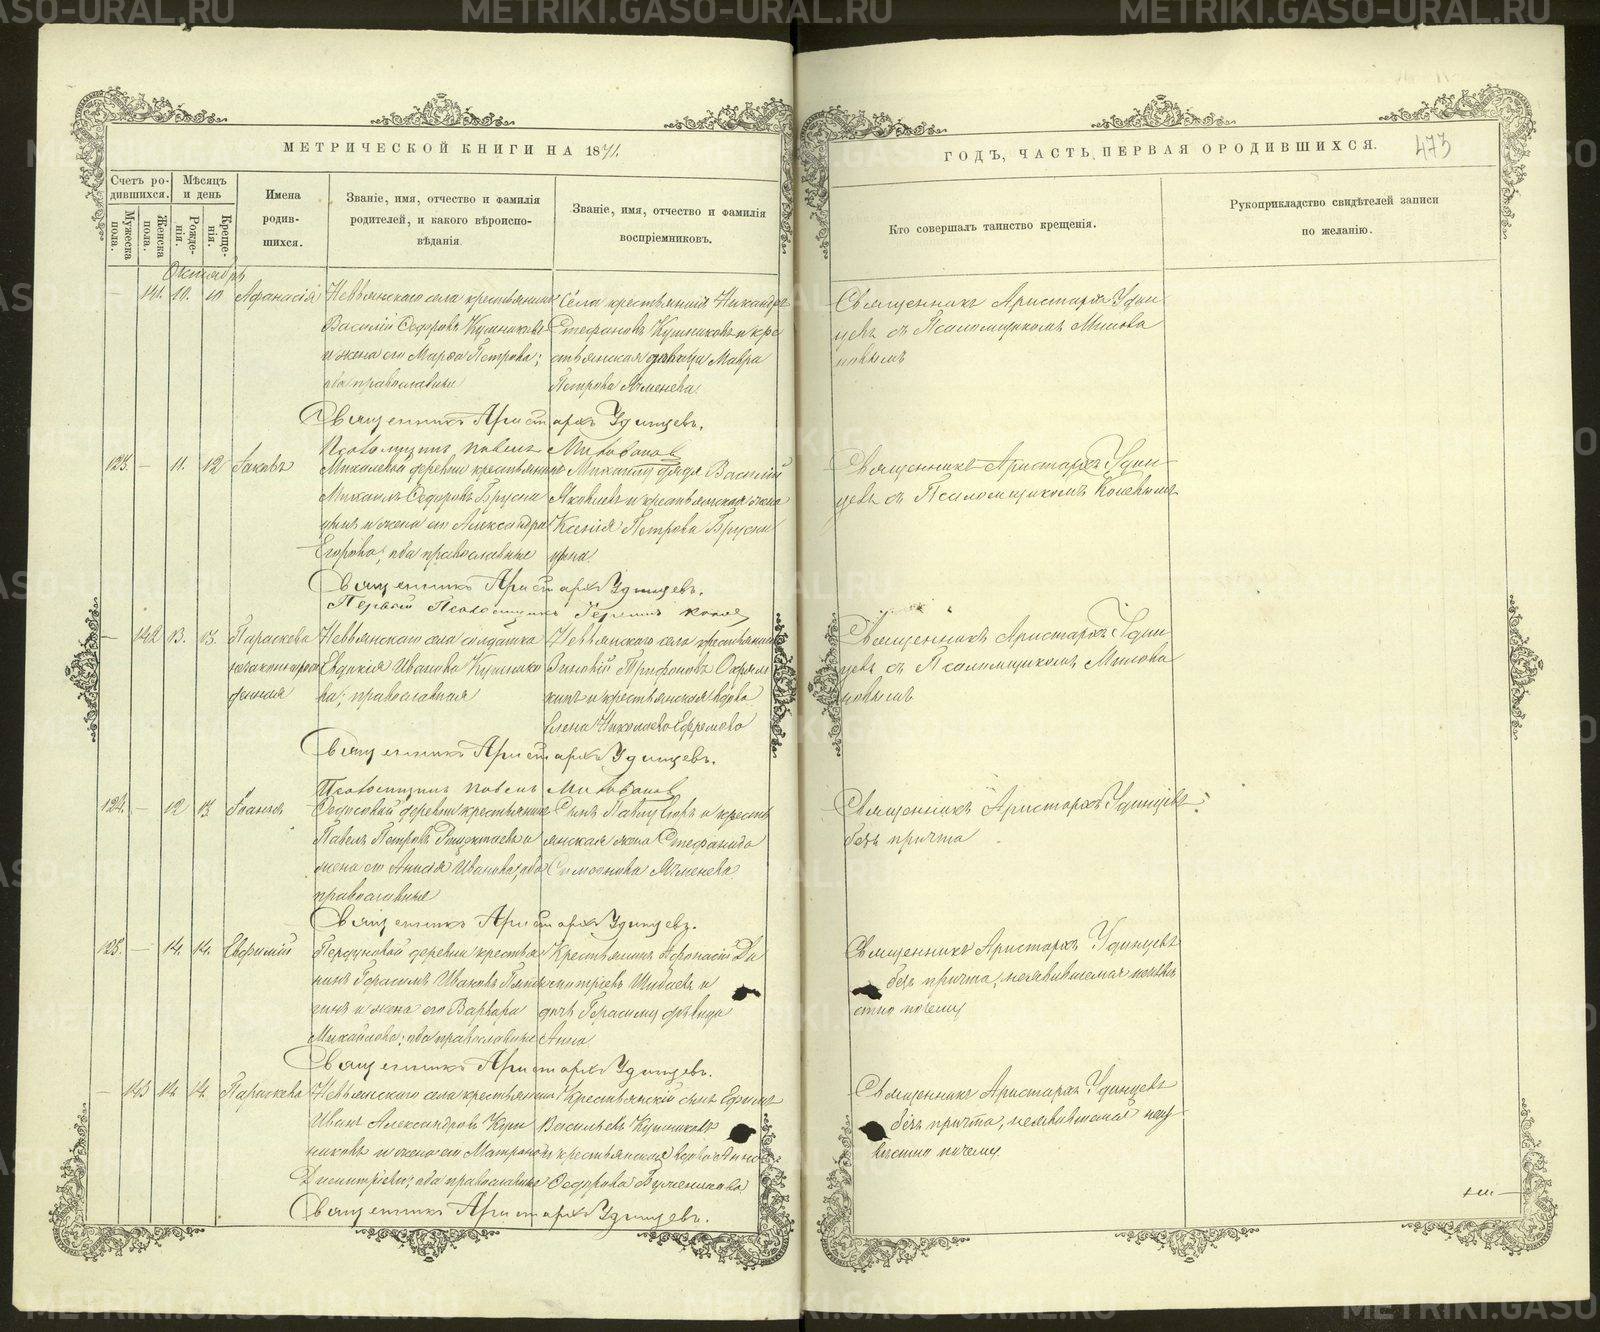 МЕТРИЧЕСКОЙ КНИГИ НА 1871.
ГОДЪ, ЧАСТЬ ПЕРВАЯ О РОДИВШИХСЯ. 473
Счетъ родившихся.
Мужеска пола.
Женска пола.
Мѣсяцъ и день
Рожденія.
Крещенія.
Имена родившихся.
Званіе, имя, отчество и фамилія родителей, и какого вѣроисповѣданія.
Званіе, имя, отчество и фамилія воспріемниковъ.
Кто совершалъ таинство крещенія.
Рукоприкладство свидѣтелей записи по желанію.
Октябрь
— 141. 10. 10 Афанасія
Невьянскаго села крестьянинъ
Василій Ѳедоровъ Кушниковъ
и жена его Марѳа Петрова;
оба православные
Села крестьянинъ Никандръ
Стефановъ Кушниковъ и кре
стьянская дѣвица Мавра
Петрова Ячменева
Священникъ Аристархъ Удин
цевъ съ Псаломщикомъ Милова
новымъ
Священникъ Аристархъ Удинцевъ.
Псаломщикъ Павелъ Миловановъ
123. — 11. 12 Іаковъ
деревни крестьянинъ
Михаилъ Ѳедоровъ Брусни
цынъ и жена его Александра
Егорова; оба православные
Михаилу дядя Василій
Яковлевъ и крестьянская жена
Ксенія Петрова Брусни
цына
Священникъ Аристархъ Удин
цевъ съ Псаломщикомъ
Священникъ Аристархъ Удинцевъ.
Первый Псаломщикъ
— 142 13. 13. Параскева
незаконорож
денная
Невьянскаго села солдатка
Евдокія Иванова Кушнико
ва; православная
Невьянскаго села крестьянинъ
Зиновій Трифоновъ
и крестьянская вдова
Елена Николаева Ефремова
Священникъ Аристархъ Удин
цевъ съ Псаломщикомъ Милова
новымъ
Священникъ Аристархъ Удинцевъ.
Псаломщикъ Павелъ Миловановъ
124. — 12 13. Іоаннъ
Ѳедосовой деревни крестьянинъ
Павелъ Петровъ и
жена его Анисія Иванова; оба
православные
Сынъ Павлу Егоръ и кресть
янская жена Стефанида
Симеонова Ячменева
Священникъ Аристархъ Удинцевъ
безъ причта
Священникъ Аристархъ Удинцевъ.
125. — 14. 14. Евфимій
Першуновой деревни крестья
нинъ Герасимъ Ивановъ
и жена его Варвара
Михайлова; оба православные
Крестьянинъ Афонасій Ди
митріевъ Шибаевъ и
дочь Герасиму дѣвица
Анна
Священникъ Аристархъ Удинцевъ
безъ причта, неявившемся неизвѣ
стно почему
Священникъ Аристархъ Удинцевъ.
— 143 14. 14. Параскева
Невьянскаго села крестьянинъ
Иванъ Александровъ Куш
никовъ и жена его Матрона
Димитріева; оба православные
Крестьянскій сынъ Ефимъ
Васильевъ Кушниковъ
и крестьянская вдова Анна
Ѳедорова
Священникъ Аристархъ Удинцевъ
безъ причта, неявившемся неиз
вѣстно почему
Священникъ Аристархъ Удинцевъ.
METRIKI.GASO-URAL.RU